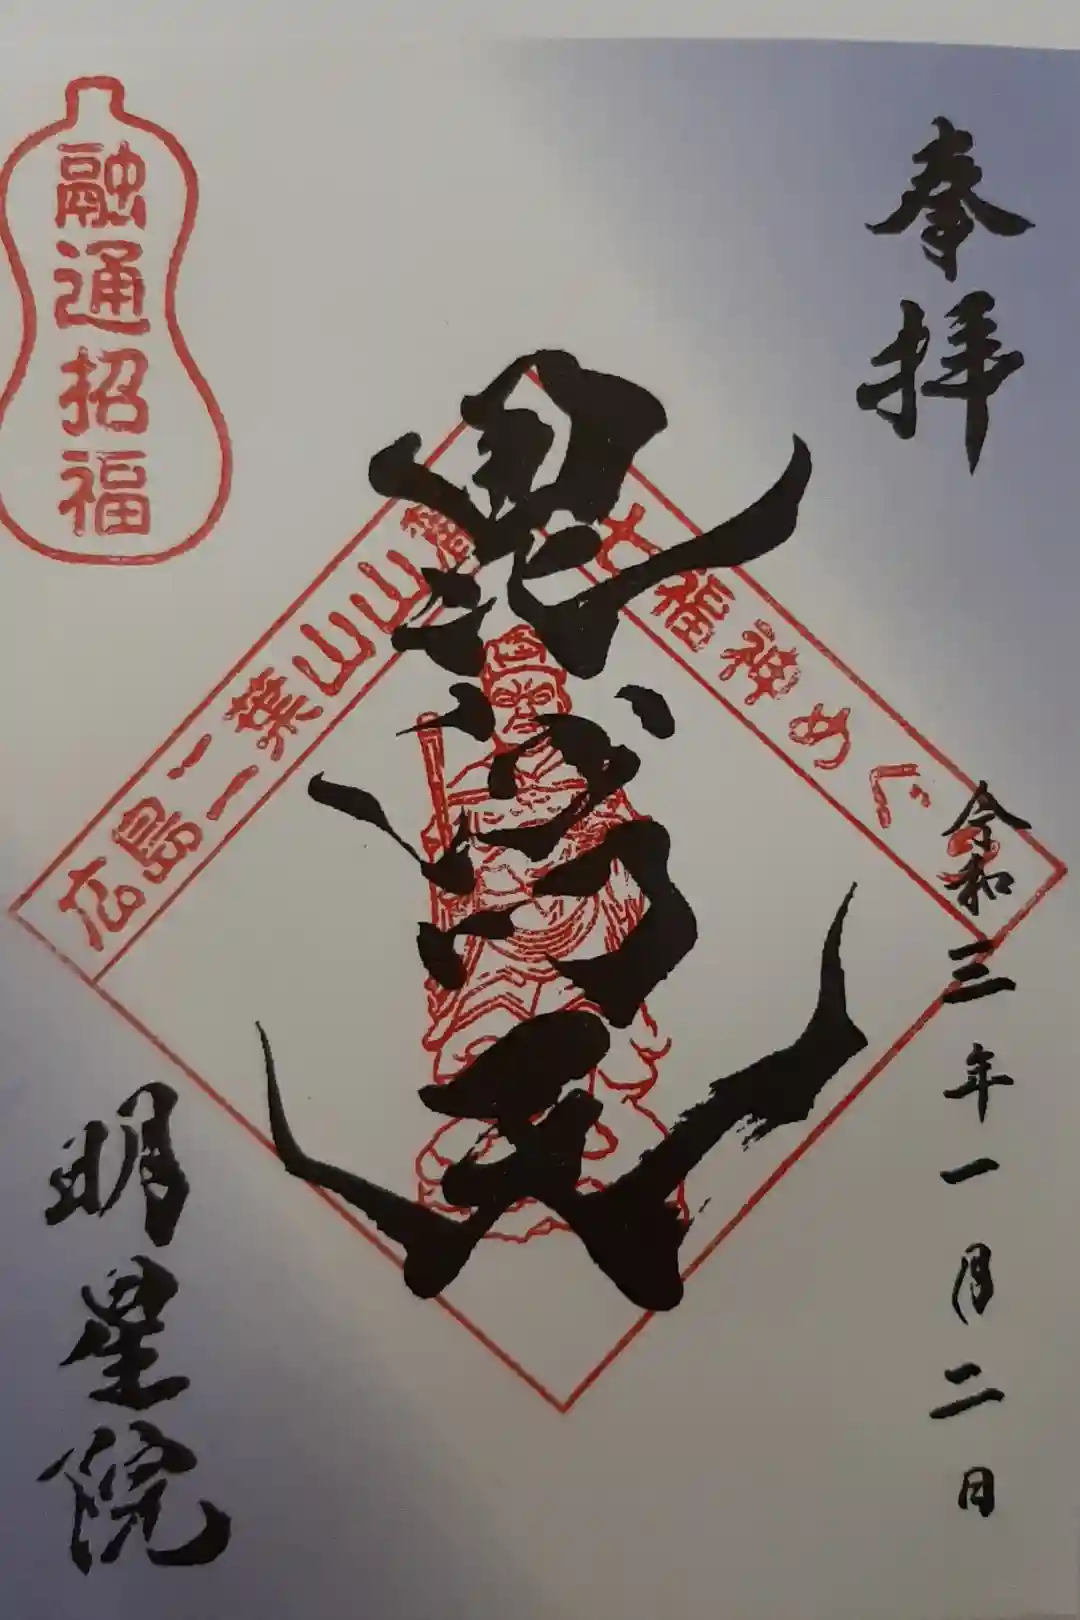 奉拝
令和三年一月二日
毘沙門天
七福神めぐり
広島二葉山山麓
融通招福
明星院